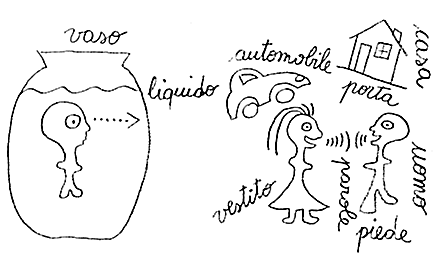 vaso
liquido
automobile
porta
casa
vestito
parole
piede
uomo